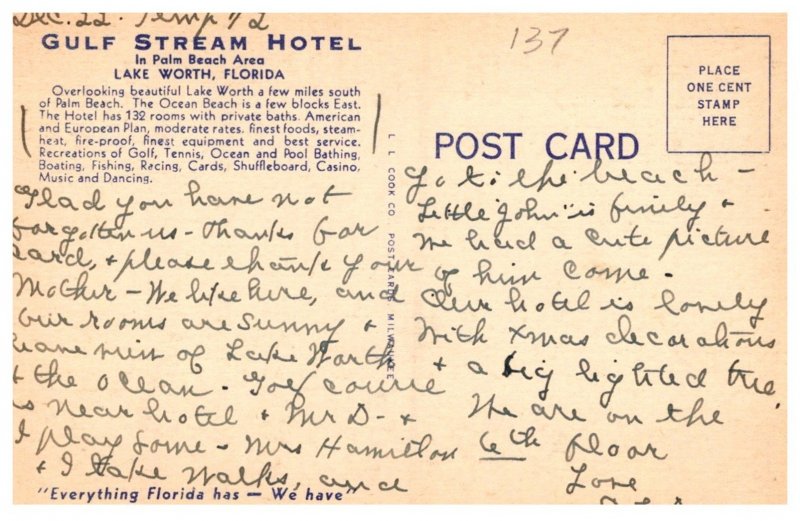 Dec. 22. Temp 72
GULF STREAM HOTEL
In Palm Beach Area
LAKE WORTH, FLORIDA
Overlooking beautiful Lake Worth a few miles south
of Palm Beach. The Ocean Beach is a few blocks East.
The Hotel has 132 rooms with private baths. American
and European Plan, moderate rates, finest foods, steam-
heat, fire-proof, finest equipment and best service.
Recreations of Golf, Tennis, Ocean and Pool Bathing,
Boating, Fishing, Racing, Cards, Shuffleboard, Casino,
Music and Dancing.
Glad you have not
forgotten us - Thanks for
card, + please thank your
Mother - We like here, and
our rooms are sunny +
have view of Lake Worth
+ the ocean. Golf course
is near hotel + Mr D- +
I play some - Mrs Hamilton
+ I take walks, and
"Everything Florida has — We have"
L. L. COOK CO POST CARDS MILWAUKEE
137
PLACE
ONE CENT
STAMP
HERE
POST CARD
go to the beach -
"Little John" is finely +
we had a cute picture
of him come.
Our hotel is lovely
with Xmas decorations
+ a big lighted tree.
We are on the
6th floor
Love